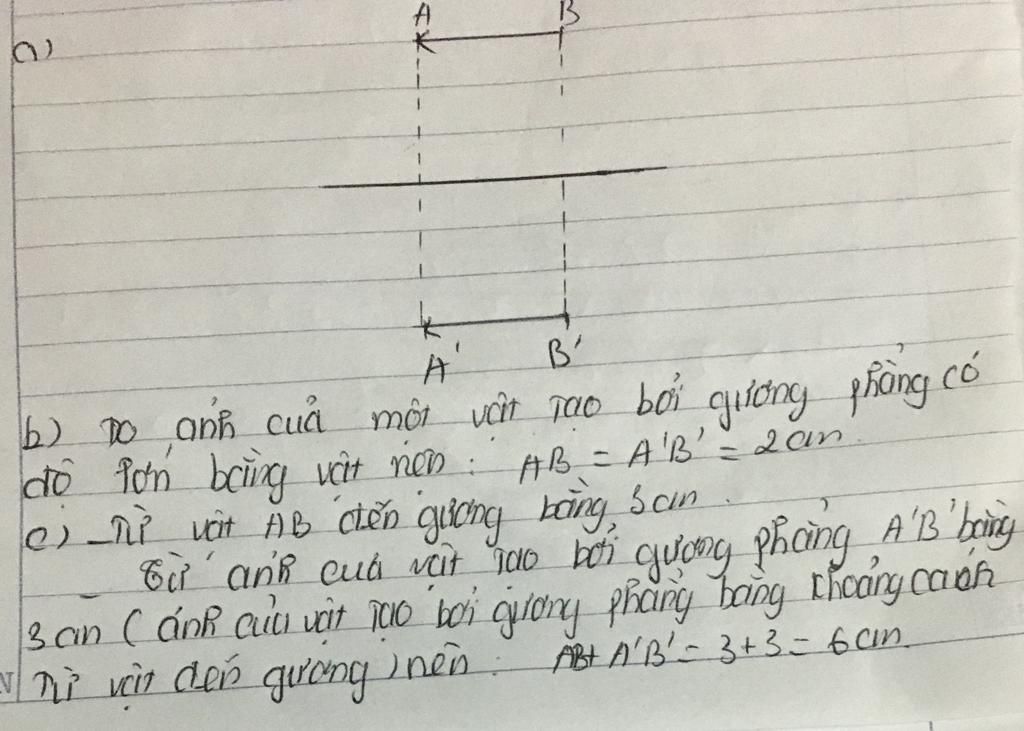 a)
A B
A' B'
b) Do ảnh của một vật tạo bởi gương phẳng có
độ lớn bằng vật nên : AB = A'B' = 2cm.
c) - Từ vật AB đến gương bằng 3cm.
- Từ ảnh của vật tạo bởi gương phẳng A'B' bằng
3cm (ảnh của vật tạo bởi gương phẳng bằng khoảng cách
từ vật đến gương) nên : AB+ A'B' = 3+3 = 6cm.